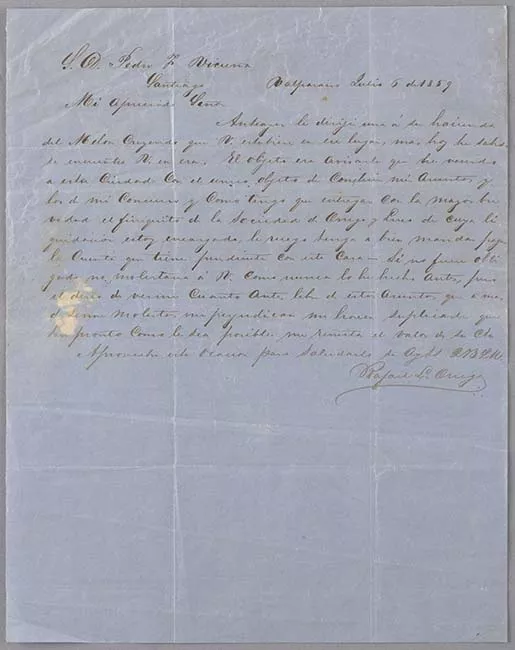 S. D. Pedro F. Vicuña
Santiago Valparaiso Julio 6 de 1859
Mi Apreciado Señor
Antayer le dirijí una á su hacienda
del Melon Creyendo que V. estubiera en ese lugar, mas hoy he sabido
se encuentra V. en esa. El objeto era avisarle que he venido
a esta Ciudad Con el unico objeto de Concluir mis Asuntos y
los de mi Concurso y Como tengo que entregar con la mayor bre
vedad el finiquito de la Sociedad de Orrego y de cuya li
quidacion estoy encargado, le ruego tenga a bien mandar
la Cuenta que tiene pendiente con esta Casa — Si no fuera obli
gado no molestaria á V. Como nunca lo he hecho Antes, pero
el deseo de verme Cuanto Antes libre de estos Asuntos, que a mas
de serme molestos, me perjudican me hacen suplicarle que
tan pronto Como le sea posible me remita el valor de su Cta
Aprovecho esta ocasion para Saludarlo su Q.B.S.M.
Rafael Orrego